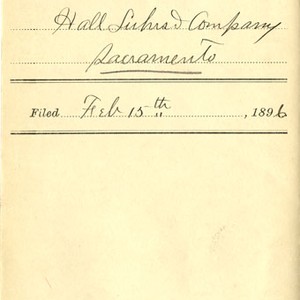 Hall Luhrs & Company
Sacramento
Filed Feb 15th, 1896